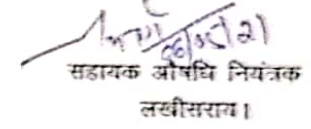 सहायक औषधि नियंत्रक
लखीसराय।